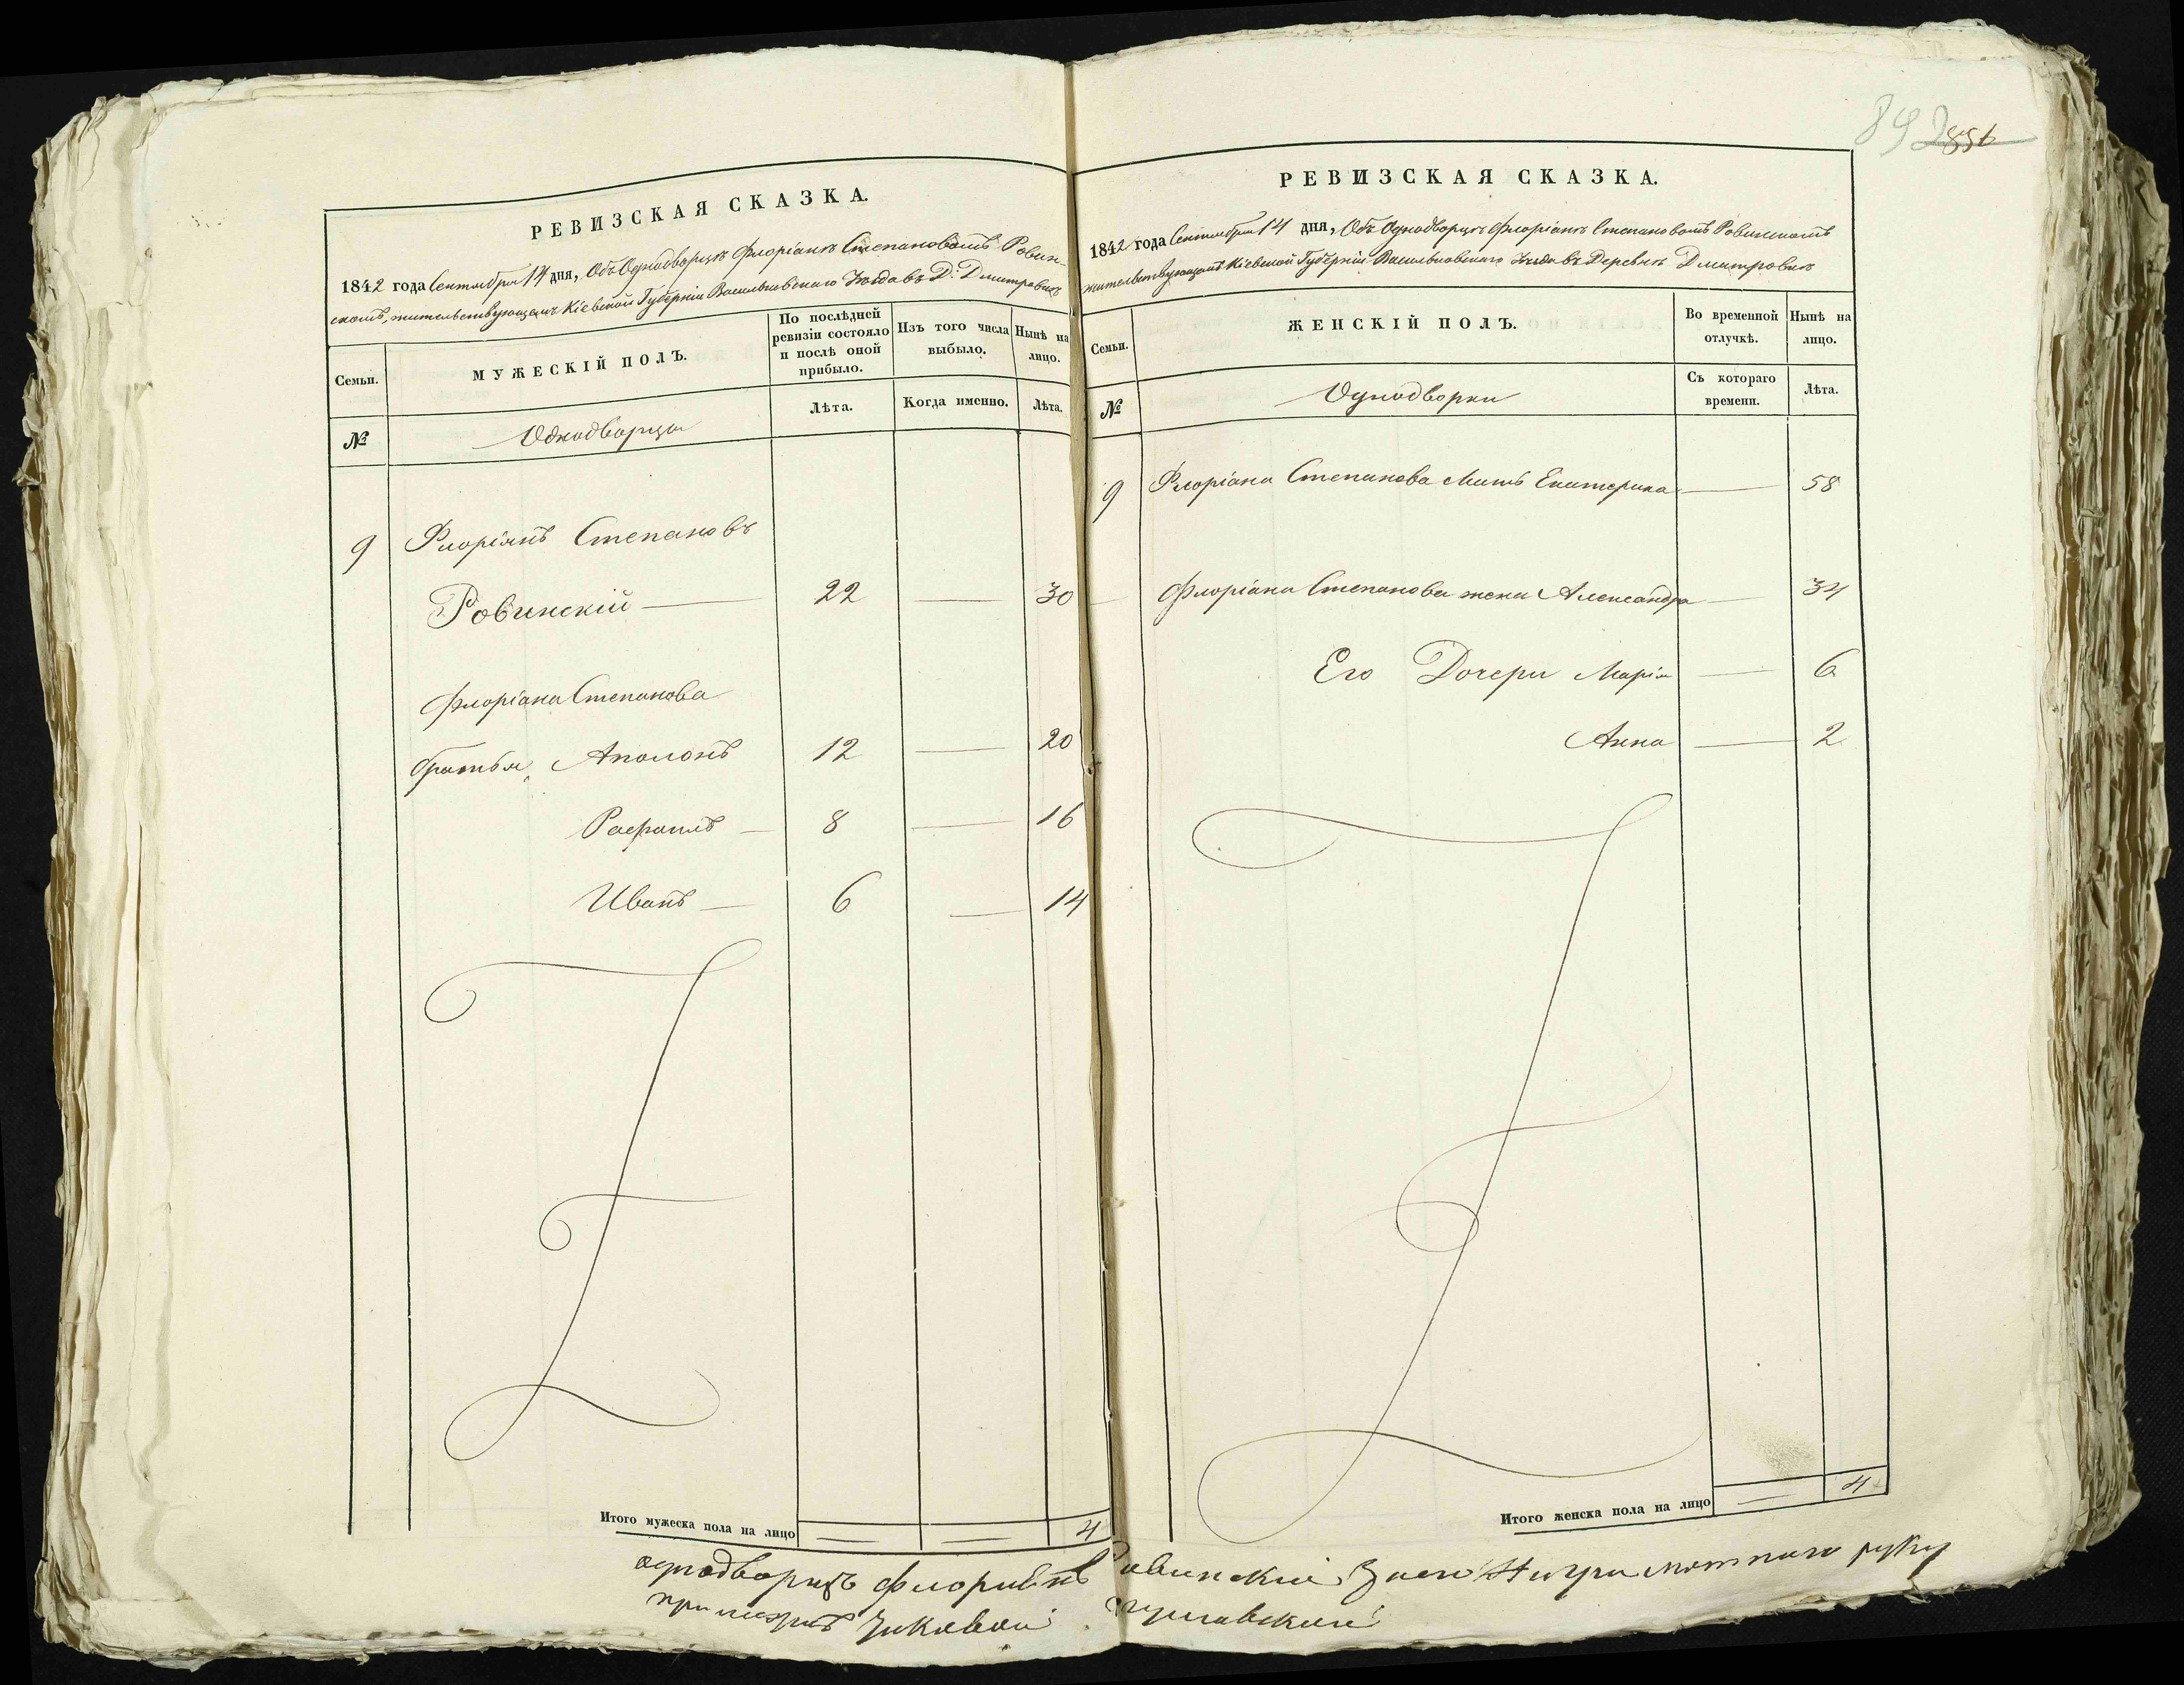 892 856
РЕВИЗСКАЯ СКАЗКА.
1842 года Сентября 14 дня, Объ Однодворцѣ Флоріанѣ Степановомъ Ровин-
скомъ, жительствующемъ Кіевской Губерніи Васильковскаго Уѣзда въ Д. Дмитровкѣ
Семьи.
МУЖЕСКІЙ ПОЛЪ.
По послѣдней ревизіи состояло и послѣ оной прибыло.
Изъ того числа выбыло.
Нынѣ на лицо.
№
Однодворцы
Лѣта.
Когда именно.
Лѣта.
9 Флоріянъ Степановъ
Ровинскій — 22 — 30
Флоріана Степанова
братья, Аполонъ 12 — 20
Рафаилъ — 8 — 16
Иванъ — 6 — 14
Итого мужеска пола на лицо — — 4
РЕВИЗСКАЯ СКАЗКА.
1842 года Сентября 14 дня, Объ Однодворцѣ Флоріанѣ Степановомъ Ровинскомъ
жительствующемъ Кіевской Губерніи Васильковскаго Уѣзда въ Деревнѣ Дмитровкѣ
Семьи.
ЖЕНСКІЙ ПОЛЪ.
Во временной отлучкѣ.
Нынѣ на лицо.
№
Однодворки
Съ котораго времени.
Лѣта.
9 Флоріана Степанова Мать Екатерина — 58
Флоріана Степанова жена Александра — 34
Его Дочери Марія — 6
Анна — 2
Итого женска пола на лицо — 4
однодворецъ Флориянъ Ровинский